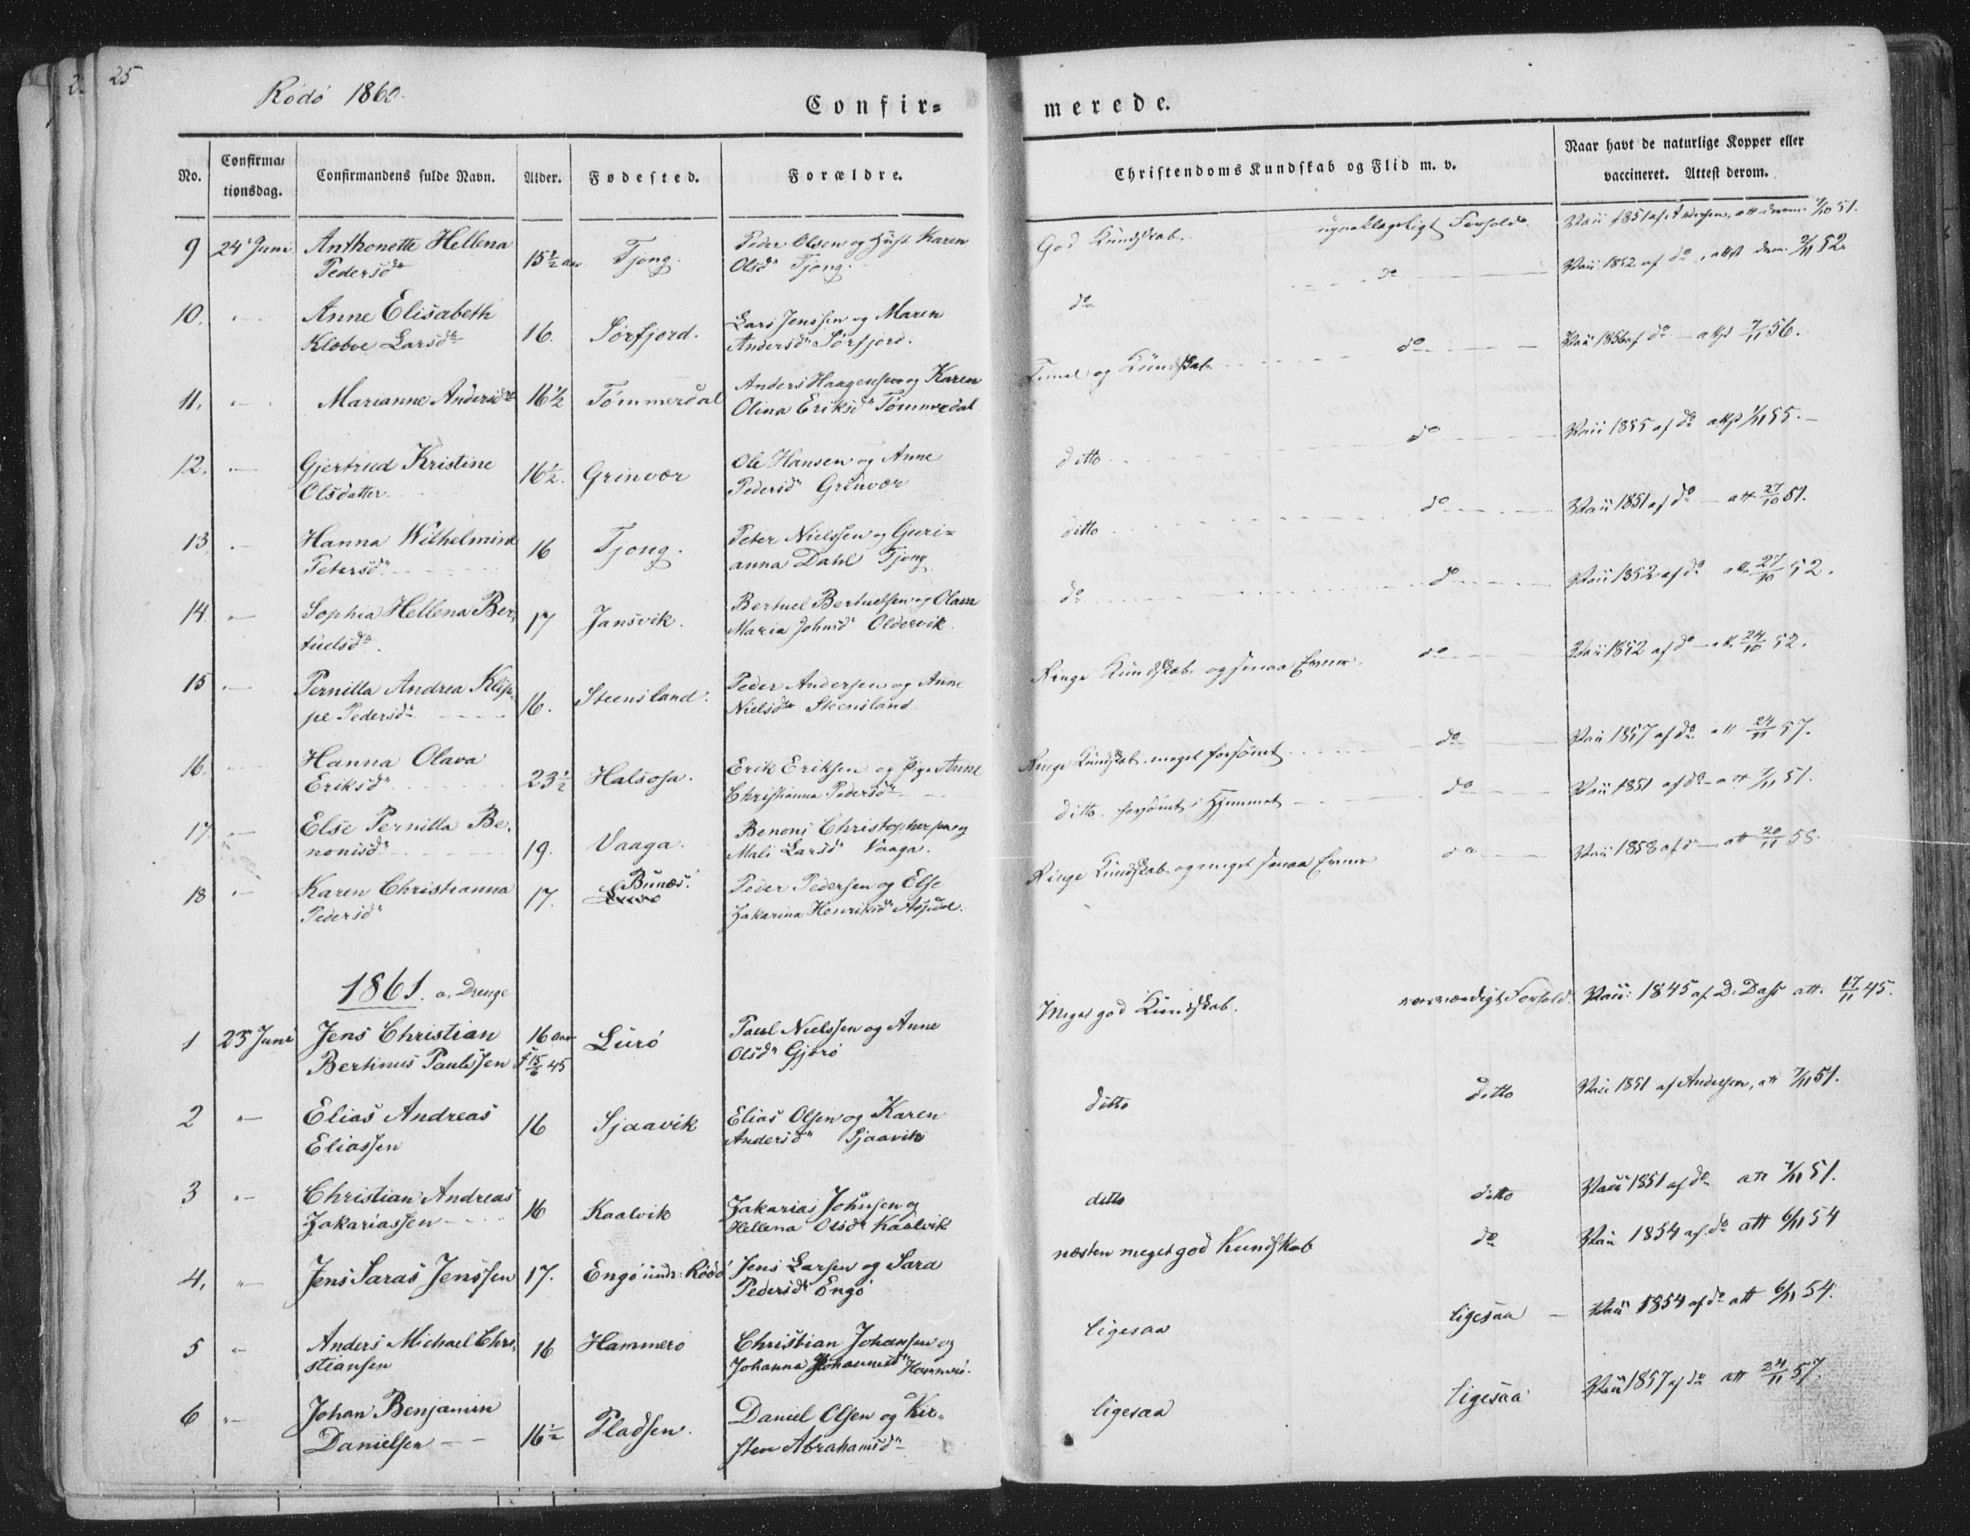 25
Rödö 1860.
Confir=
merede.
No.
Confirma-
tionsdag.
Confirmandens fulde Navn.
Alder.
Fødested.
Forældre.
Christendoms Kundskab og Flid m. v.
Naar havt de naturlige Kopper eller
vaccineret. Attest derom.
9 24' Juni Anthonette Hellena
Pedersdr 15½ aar Tjong. Peder Olsen og Hust. Karen
Olsdr Tjong.
God Kundskab. upaaklageligt Forhold. Vaii 1851 af Andersen, att derom 51.
10. Anne Elisabeth
Klæboe Larsdr 16. Sørfjord. Lars Jenssen og Maren
Andersdr Sørfjord.
do do Vaii 1852 af do, attst derom 52
11. Marianne Andersdr 16½ Tömmerdal Anders Haagensen og Karen
Olina Eriksdr Tömmerdal
og Kundskab do Vaii 1856 af do attst 7/11 56.
12. Gjertrud Kristine
Olsdatter 16½. Grinvær Ole Hansen og Anne
Pedersdr Grinvær
ditto do Vaii 1855 af do attst 55.
13 Hanna Wilhelmine
Petersdr 16 Tjong. Peter Nielssen og Guri=
anna Dahl Tjong
ditto do Vaii 1851 af do att 27/10 51.
14. Sophia Hellena Ber-
tuelsdr. 17 Jansvik. Bertuel Bertuelsen og Olava
Maria Johnsdr Oldervik.
do do Vaii 1852 af do att 27/10 52.
15 Pernilla Andrea Klip-
pe Pedersdr 16. Steensland. Peder Andersen og Anne
Nielsdr Steensland
Ringe Kundskab og smaa Evner. do Vaii 1852 af do att 24/10 52.
16. Hanna Olava
Eriksdr 23½ Halsosa. Erik Eriksen og Pige Anne
Christianna Pedersdr
Ringe Kundskab. meget forsömt do Vaii 1857 af do att 24/11 57.
17 Else Pernilla Be-
nonisdr 19. Vaaga. Benoni Christophersen og
Mali Larsdr Vaaga.
ditto. forsömt i Hjemmet do Vaii 1851 af do att 7/11 51.
18 Karen Christianna
Pedersdr 17. Bunæs. Peder Pedersen og Else
Zakarina Henriksdr Aspdal.
Ringe Kundskab og meget smaa Evner do Vaii 1858 af do att 20/11 58.
1861. a, Drenge
1 25 Juni Jens Christian
Bertinus Paulssen 16 aar
f 15/6 45 Lurö Paul Nielssen og Anne
Olsdr Gjerö
Meget god Kundskab. Forhold. Vaii: 1845 af D. Dass att. 17/11 45.
2 Elias Andreas
Eliassen 16 Sjaavik Elias Olsen og Karen
Andersdr Sjaavik
ditto ditto Vaii 1851 af Andersen, att 7/11 51.
3 Christian Andreas
Zakariassen 16 Kaalvik Zakarias Johnsen og
Hellena Olsdr Kaalvik
ditto ditto Vaii 1851 af do att 7/11 51.
4. Jens Saras Jenssen 17. Engö und: Rödö Jens Larsen og Sara
Pedersdr Engö
næsten meget god Kundskab do Vaii 1854 af do att 6/11 54
5 Anders Michael Chri-
stiansen 16 Hammerö Christian Johansen og
Johanna Johannesdr Hammerö.
ligesaa ligesaa Vaii 1854 af do att 6/11 54.
6 Johan Benjamin
Danielsen 16½ Pladsen. Daniel Olsen og Kir-
sten Abrahamsdr
ligesaa ligesaa Vaii 1857 af do att 24/11 57.